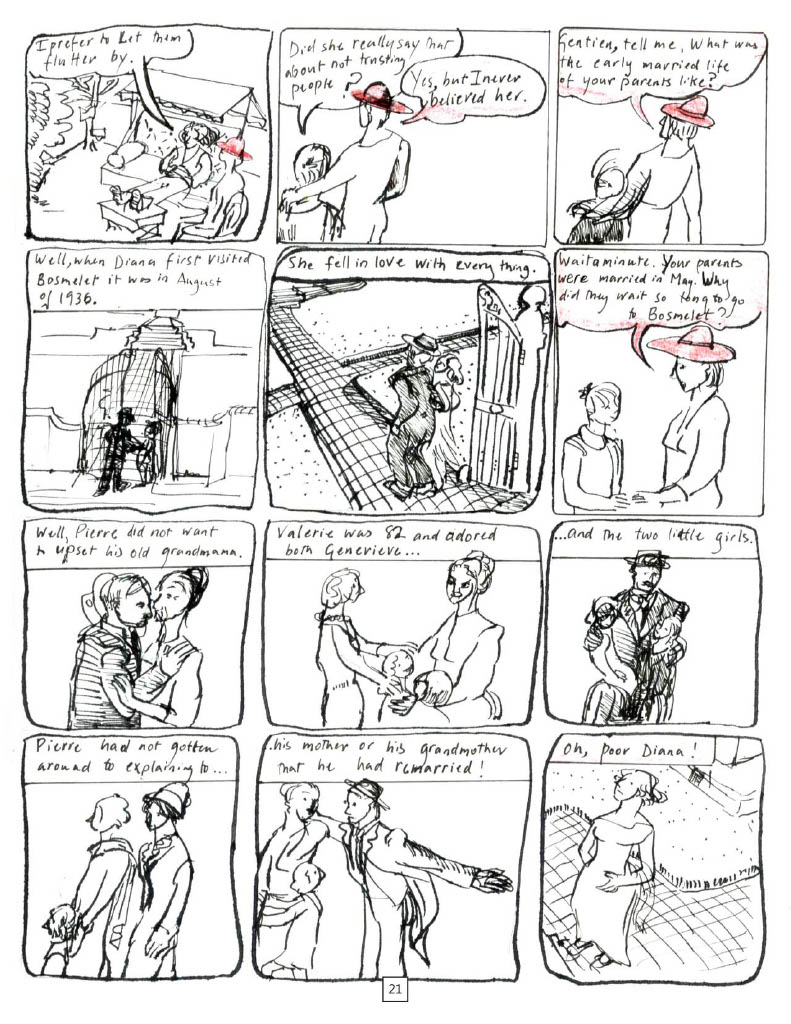 I prefer to let them
flutter by.
Did she really say that
about not trusting
people?
Yes, but I never
believed her.
Gentien, tell me, What was
the early married life
of your parents like?
Well, when Diana first visited
Bosmelet it was in August
of 1936.
She fell in love with every thing.
Waitaminute. Your parents
were married in May. Why
did they wait so long to go
to Bosmelet?
Well, Pierre did not want
to upset his old grandmama.
Valerie was 82 and adored
both Genevieve...
...and the two little girls.
Pierre had not gotten
around to explaining to...
..his mother or his grandmother
that he had remarried!
Oh, poor Diana!
21